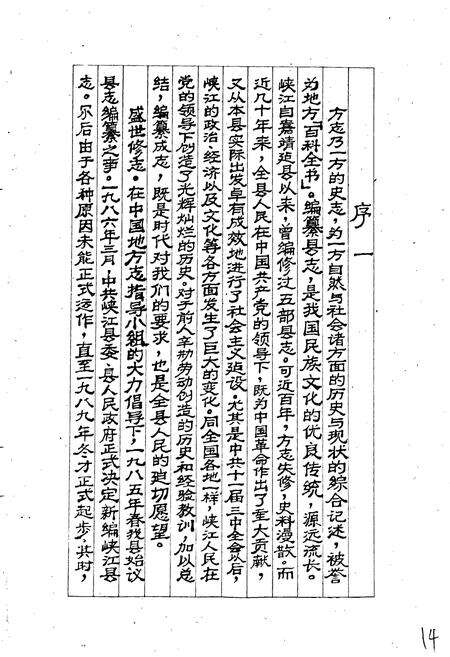 序一
方志乃一方的史志，为一方自然与社会诸方面的历史与现状的综合记述，被誉
为地方「百科全书」。编纂县志，是我国民族文化的优良传统，源远流长。
峡江自嘉靖建县以来，曾编修过五部县志。可近百年，方志失修，史料漫散。而
近几十年来，全县人民在中国共产党的领导下，既为中国革命作出了重大贡献，
又从本县实际出发卓有成效地进行了社会主义建设。尤其是中共十一届三中全会以后，
峡江的政治、经济以及文化等各方面发生了巨大的变化。同全国各地一样，峡江人民在
党的领导下创造了光辉灿烂的历史。对于前人辛勤劳动创造的历史和经验教训，加以总
结，编纂成志，既是时代对我们的要求，也是全县人民的迫切愿望。
盛世修志。在中国地方志指导小组的大力倡导下，一九八五年春我县始议
县志编纂之事。一九八六年三月，中共峡江县委、县人民政府正式决定新编峡江县
志。尔后由于各种原因未能正式运作，直至一九八九年冬才正式起步。其时，
14